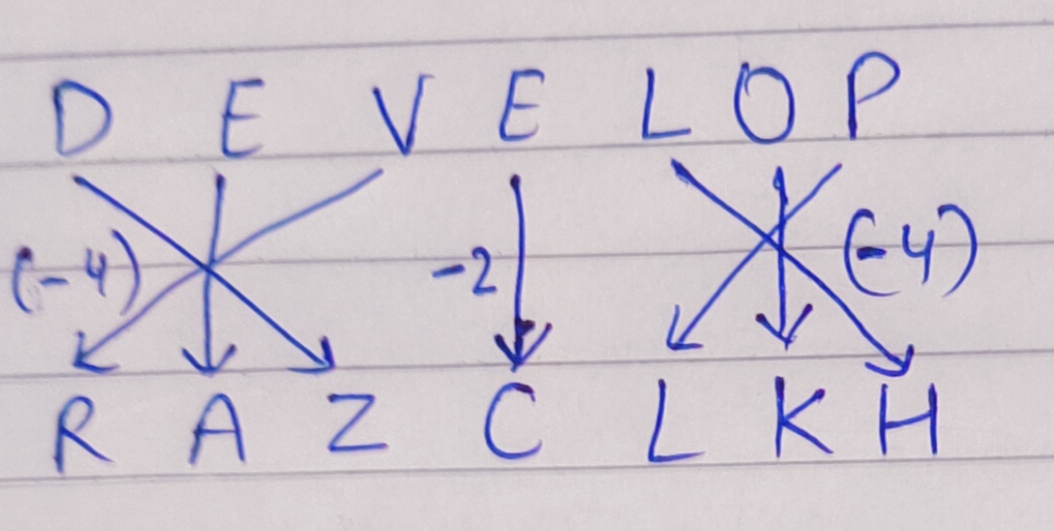 D E V E L O P
(-4) -2 (-4)
R A Z C L K H